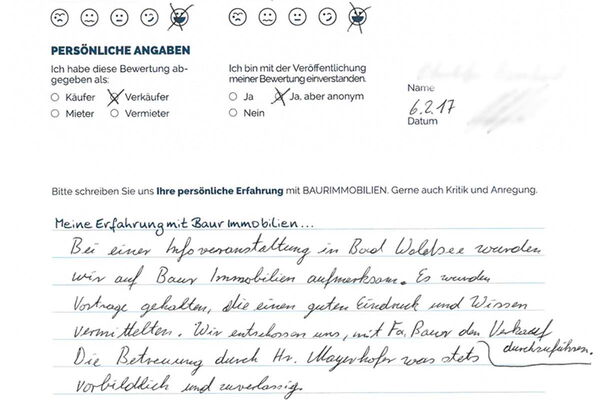 PERSÖNLICHE ANGABEN
Ich habe diese Bewertung ab-
gegeben als:
Käufer Verkäufer
Mieter Vermieter
Ich bin mit der Veröffentlichung
meiner Bewertung einverstanden.
Ja Ja, aber anonym
Nein
Name
6.2.17
Datum
Bitte schreiben Sie uns Ihre persönliche Erfahrung mit BAURIMMOBILIEN. Gerne auch Kritik und Anregung.
Meine Erfahrung mit Baur Immobilien...
Bei einer Infoveranstaltung in Bad Waldsee wurden
wir auf Baur Immobilien aufmerksam. Es wurden
Vorträge gehalten, die einen guten Eindruck und Wissen
vermittelten. Wir entschossen uns, mit Fa. Baur den Verkauf
durchzuführen.
Die Betreuung durch Hr. Mayerhofer was stets
vorbildlich und zuverlässig.